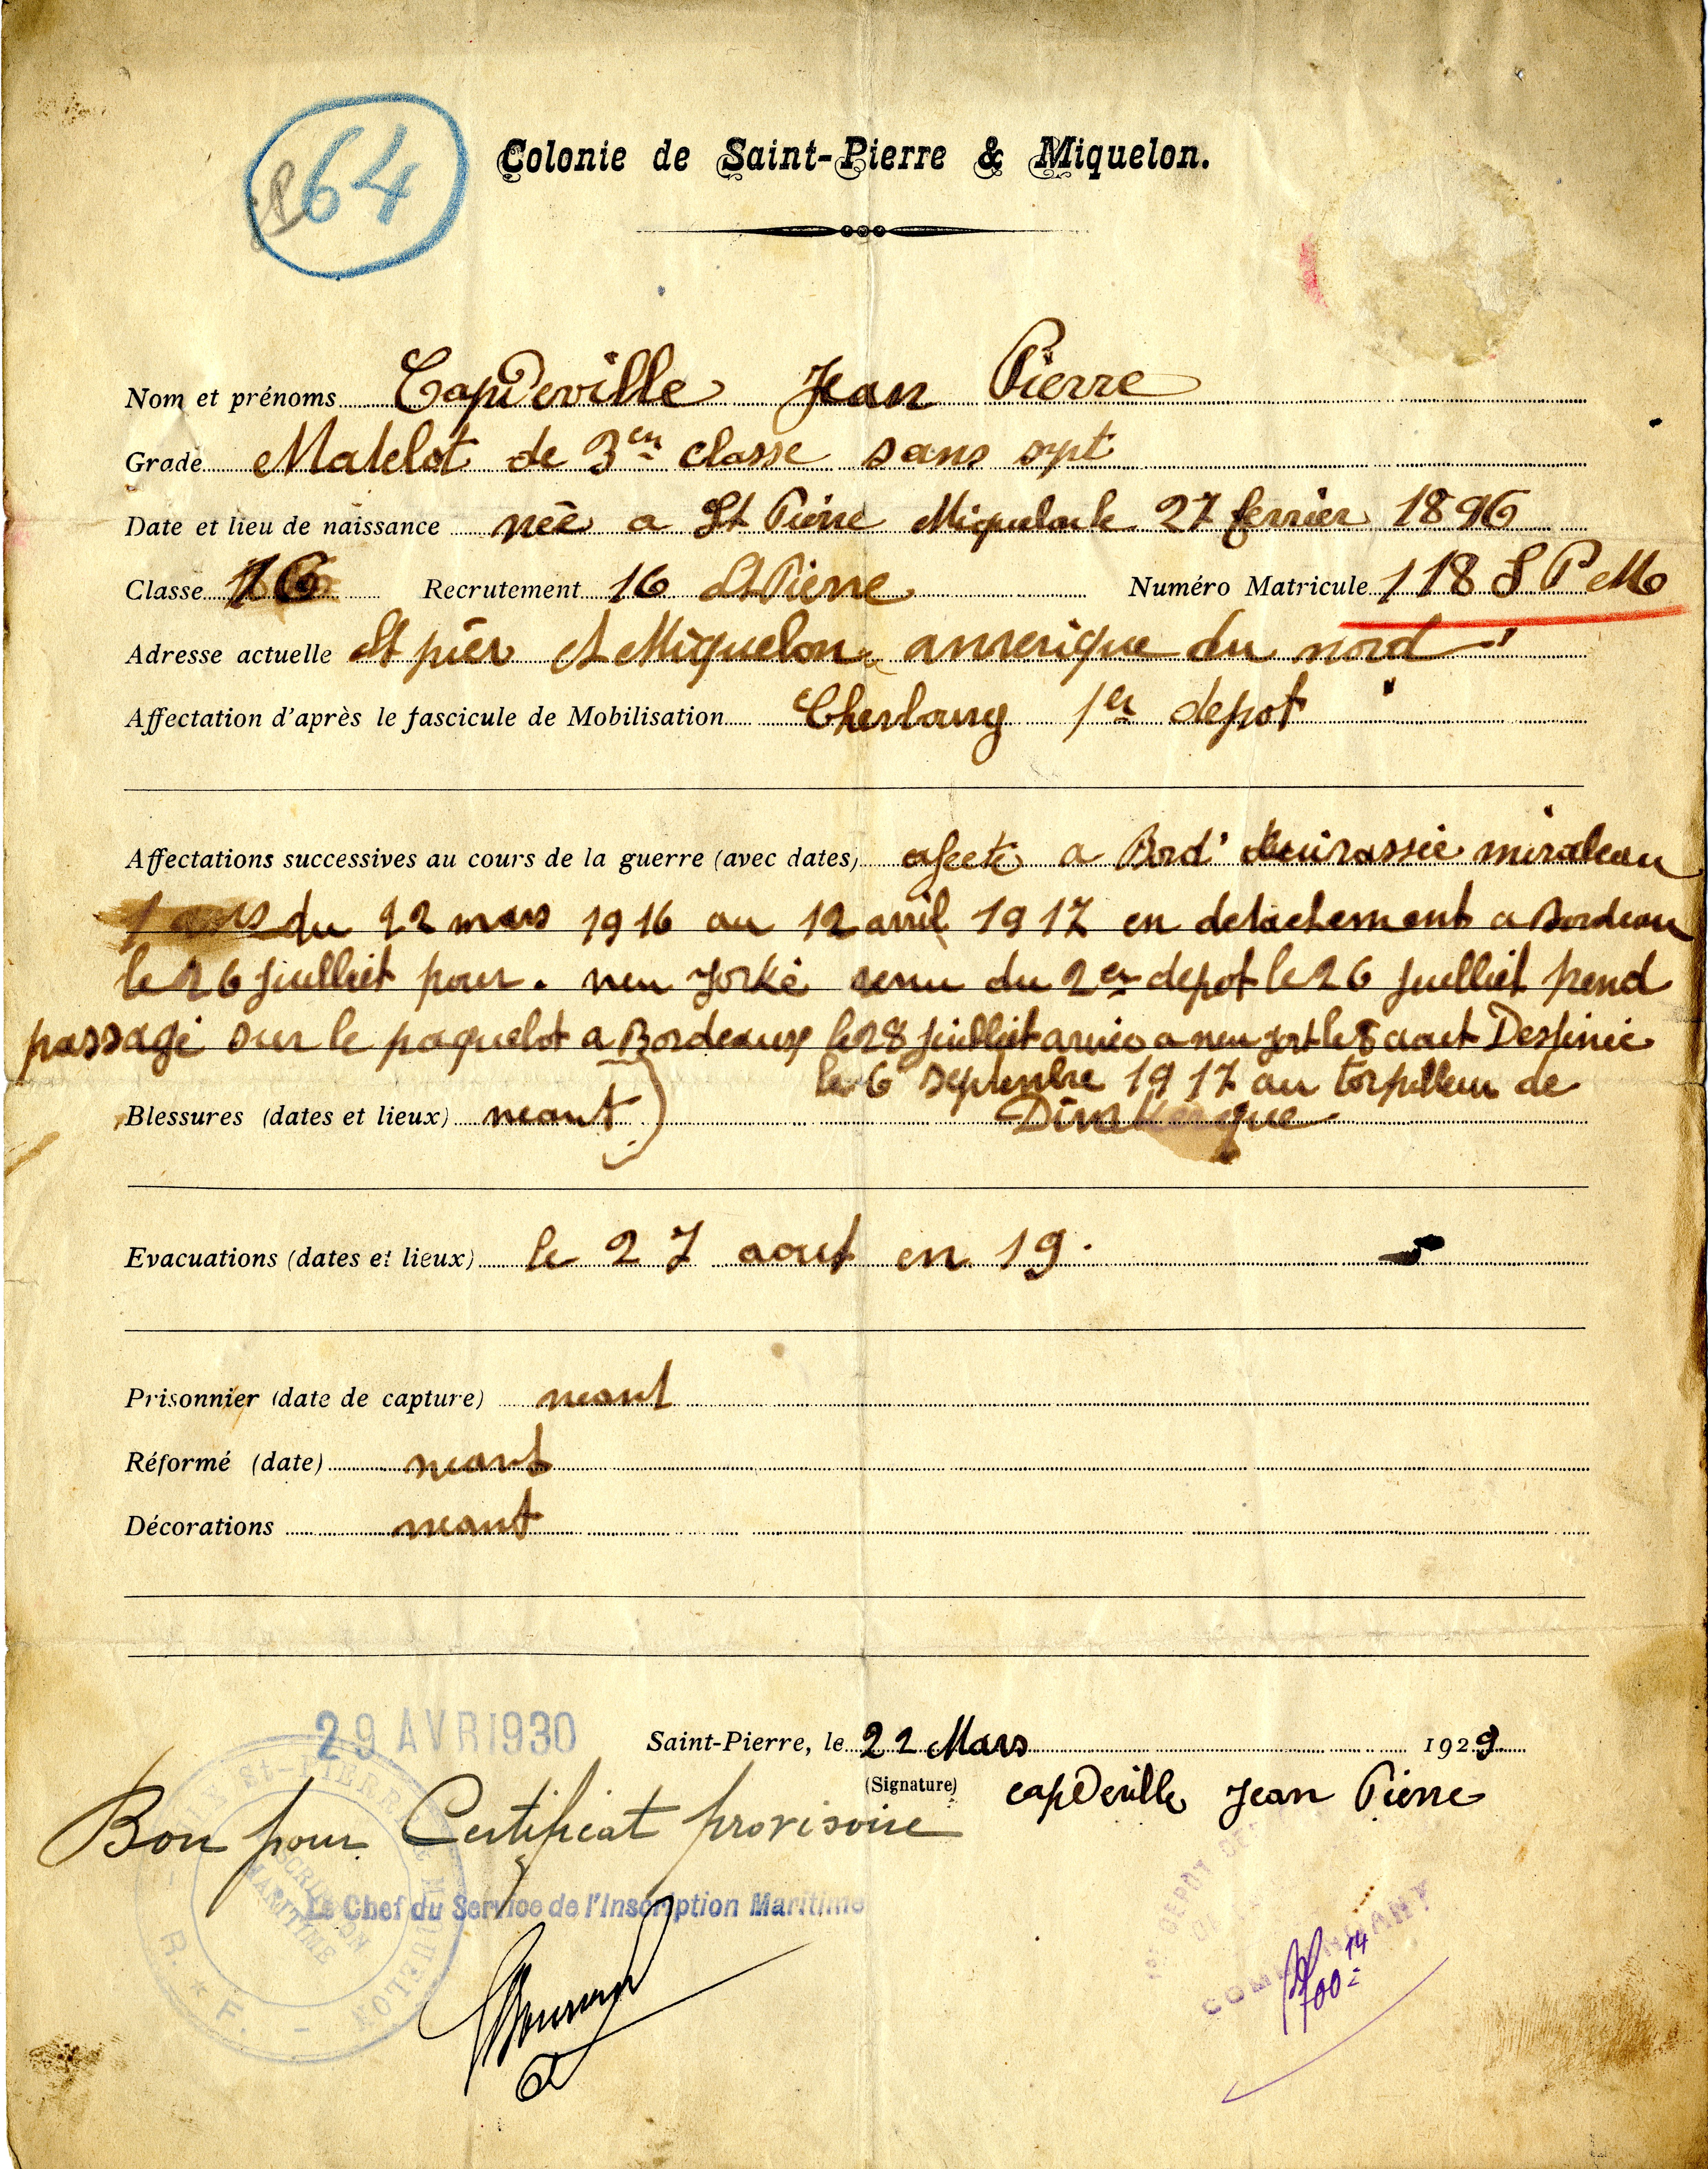 64
Colonie de Saint-Pierre & Miquelon.
Nom et prénoms Capdeville Jean Pierre
Grade Matelot de 3em classe sans spt
Date et lieu de naissance née a St Pierre Miquelon le 27 fevrier 1896
Classe 16 Recrutement 16 St Pierre Numéro Matricule 118 S P Mo
Adresse actuelle St pier et Miquelon amerique du nord
Affectation d'après le fascicule de Mobilisation Cherbourg 1er depot
Affectations successives au cours de la guerre (avec dates) afecte a Bord cuirassie mirabeau
1 ans du 12 mars 1916 au 12 avril 1917 en detachement a Bordeau
le 26 juilliet pour neu Yorke venu du 2er depot le 26 juilliet prend
passage sur le paquebot a Bordeaux le 28 juilliet arrivé a neu york le 8 aout Destinie
le 6 septembre 1917 au torpilleur de
Blessures (dates et lieux) neant Dinkerque
Evacuations (dates et lieux) le 27 aout en 19.
Prisonnier (date de capture) neant
Réformé (date) neant
Décorations neant
29 AVR 1930
Saint-Pierre, le 22 Mars 1929
(Signature) capDeville Jean Pierre
Bon pour Certificat provisoire
Le Chef du Service de l'Inscription Maritime
St-PIERRE & MIQUELON
INSCRIPTION
MARITIME
R. * F.
DEPOT DES
COMMANDANT